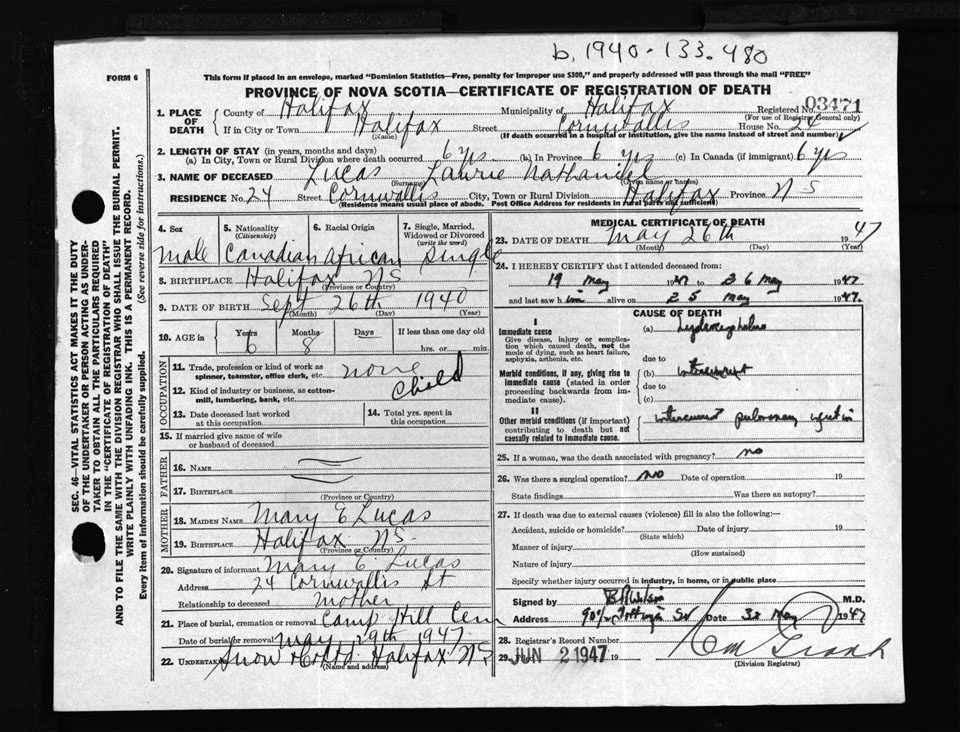 b. 1940 - 133. 480
FORM 6
This form if placed in an envelope, marked "Dominion Statistics—Free, penalty for improper use $300," and properly addressed will pass through the mail "FREE"
PROVINCE OF NOVA SCOTIA—CERTIFICATE OF REGISTRATION OF DEATH
03471
1. PLACE OF DEATH County of Halifax Municipality of Halifax Registered No.
(For use of Registrar General only)
If in City or Town Halifax Street Cornwallis House No. 24
(Name) (If death occurred in a hospital or institution, give the name instead of street and number)
2. LENGTH OF STAY (in years, months and days)
(a) In City, Town or Rural Division where death occurred 6 yrs. (b) In Province 6 yrs (c) In Canada (if immigrant) 6 yrs
3. NAME OF DECEASED Lucas Lawrie Nathaniel
(Surname) (Given name or names)
RESIDENCE No. 24 Street Cornwallis City, Town or Rural Division Halifax Province N S
(Residence means usual place of abode. Post Office Address for residents in rural parts not sufficient)
4. Sex 5. Nationality (Citizenship) 6. Racial Origin 7. Single, Married, Widowed or Divorced (write the word)
Male Canadian African Single
8. BIRTHPLACE Halifax NS
(Province or Country)
9. DATE OF BIRTH Sept 26th 1940
(Month) (Day) (Year)
10. AGE in Years Months Days If less than one day old
6 8 hrs. or min.
OCCUPATION
11. Trade, profession or kind of work as spinner, teamster, office clerk, etc. none
12. Kind of industry or business, as cotton-mill, lumbering, bank, etc. Child
13. Date deceased last worked at this occupation
14. Total yrs. spent in this occupation
15. If married give name of wife or husband of deceased
FATHER
16. NAME
17. BIRTHPLACE
(Province or Country)
MOTHER
18. MAIDEN NAME Mary E Lucas
19. BIRTHPLACE Halifax NS.
(Province or Country)
20. Signature of informant Mary E Lucas
Address 24 Cornwallis St
Relationship to deceased Mother
21. Place of burial, cremation or removal Camp Hill Cem
Date of burial or removal May 29th 1947
22. Undertaker Snow & Co Ltd Halifax N S
(Name and address)
MEDICAL CERTIFICATE OF DEATH
23. DATE OF DEATH May 26th 1947
(Month) (Day) (Year)
24. I HEREBY CERTIFY that I attended deceased from:
19 May 1947 to 26 May 1947
and last saw him alive on 25 May 1947.
CAUSE OF DEATH
I
Immediate cause
Give disease, injury or complication which caused death, not the mode of dying, such as heart failure, asphyxia, asthenia, etc.
(a) Hydrocephalus
due to
Morbid conditions, if any, giving rise to immediate cause (stated in order proceeding backwards from immediate cause).
(b) intercurrent
due to
(c)
II
Other morbid conditions (if important) contributing to death but not causally related to immediate cause.
intercurrent pulmonary infection
25. If a woman, was the death associated with pregnancy? no
26. Was there a surgical operation? no Date of operation 19
State findings Was there an autopsy?
27. If death was due to external causes (violence) fill in also the following:—
Accident, suicide or homicide? Date of injury 19
(State which)
Manner of injury
(How sustained)
Nature of injury
Specify whether injury occurred in industry, in home, or in public place
Signed by M.D.
Address Date May 1947
28. Registrar's Record Number
29. JUN 2 1947 19
(Division Registrar)
SEC. 46—VITAL STATISTICS ACT MAKES IT THE DUTY
OF THE UNDERTAKER OR PERSON ACTING AS UNDER-
TAKER TO OBTAIN ALL THE PARTICULARS REQUIRED
IN THE "CERTIFICATE OF REGISTRATION OF DEATH"
AND TO FILE THE SAME WITH THE DIVISION REGISTRAR WHO SHALL ISSUE THE BURIAL PERMIT.
WRITE PLAINLY WITH UNFADING INK. THIS IS A PERMANENT RECORD.
Every item of information should be carefully supplied. (See reverse side for instructions.)